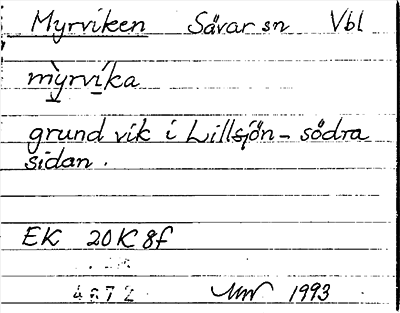 Myrviken Sävar sn Vbl
my̱rvi̱ka
grund vik i Lillsjön – södra
sidan.
EK 20K 8f
4872 1993